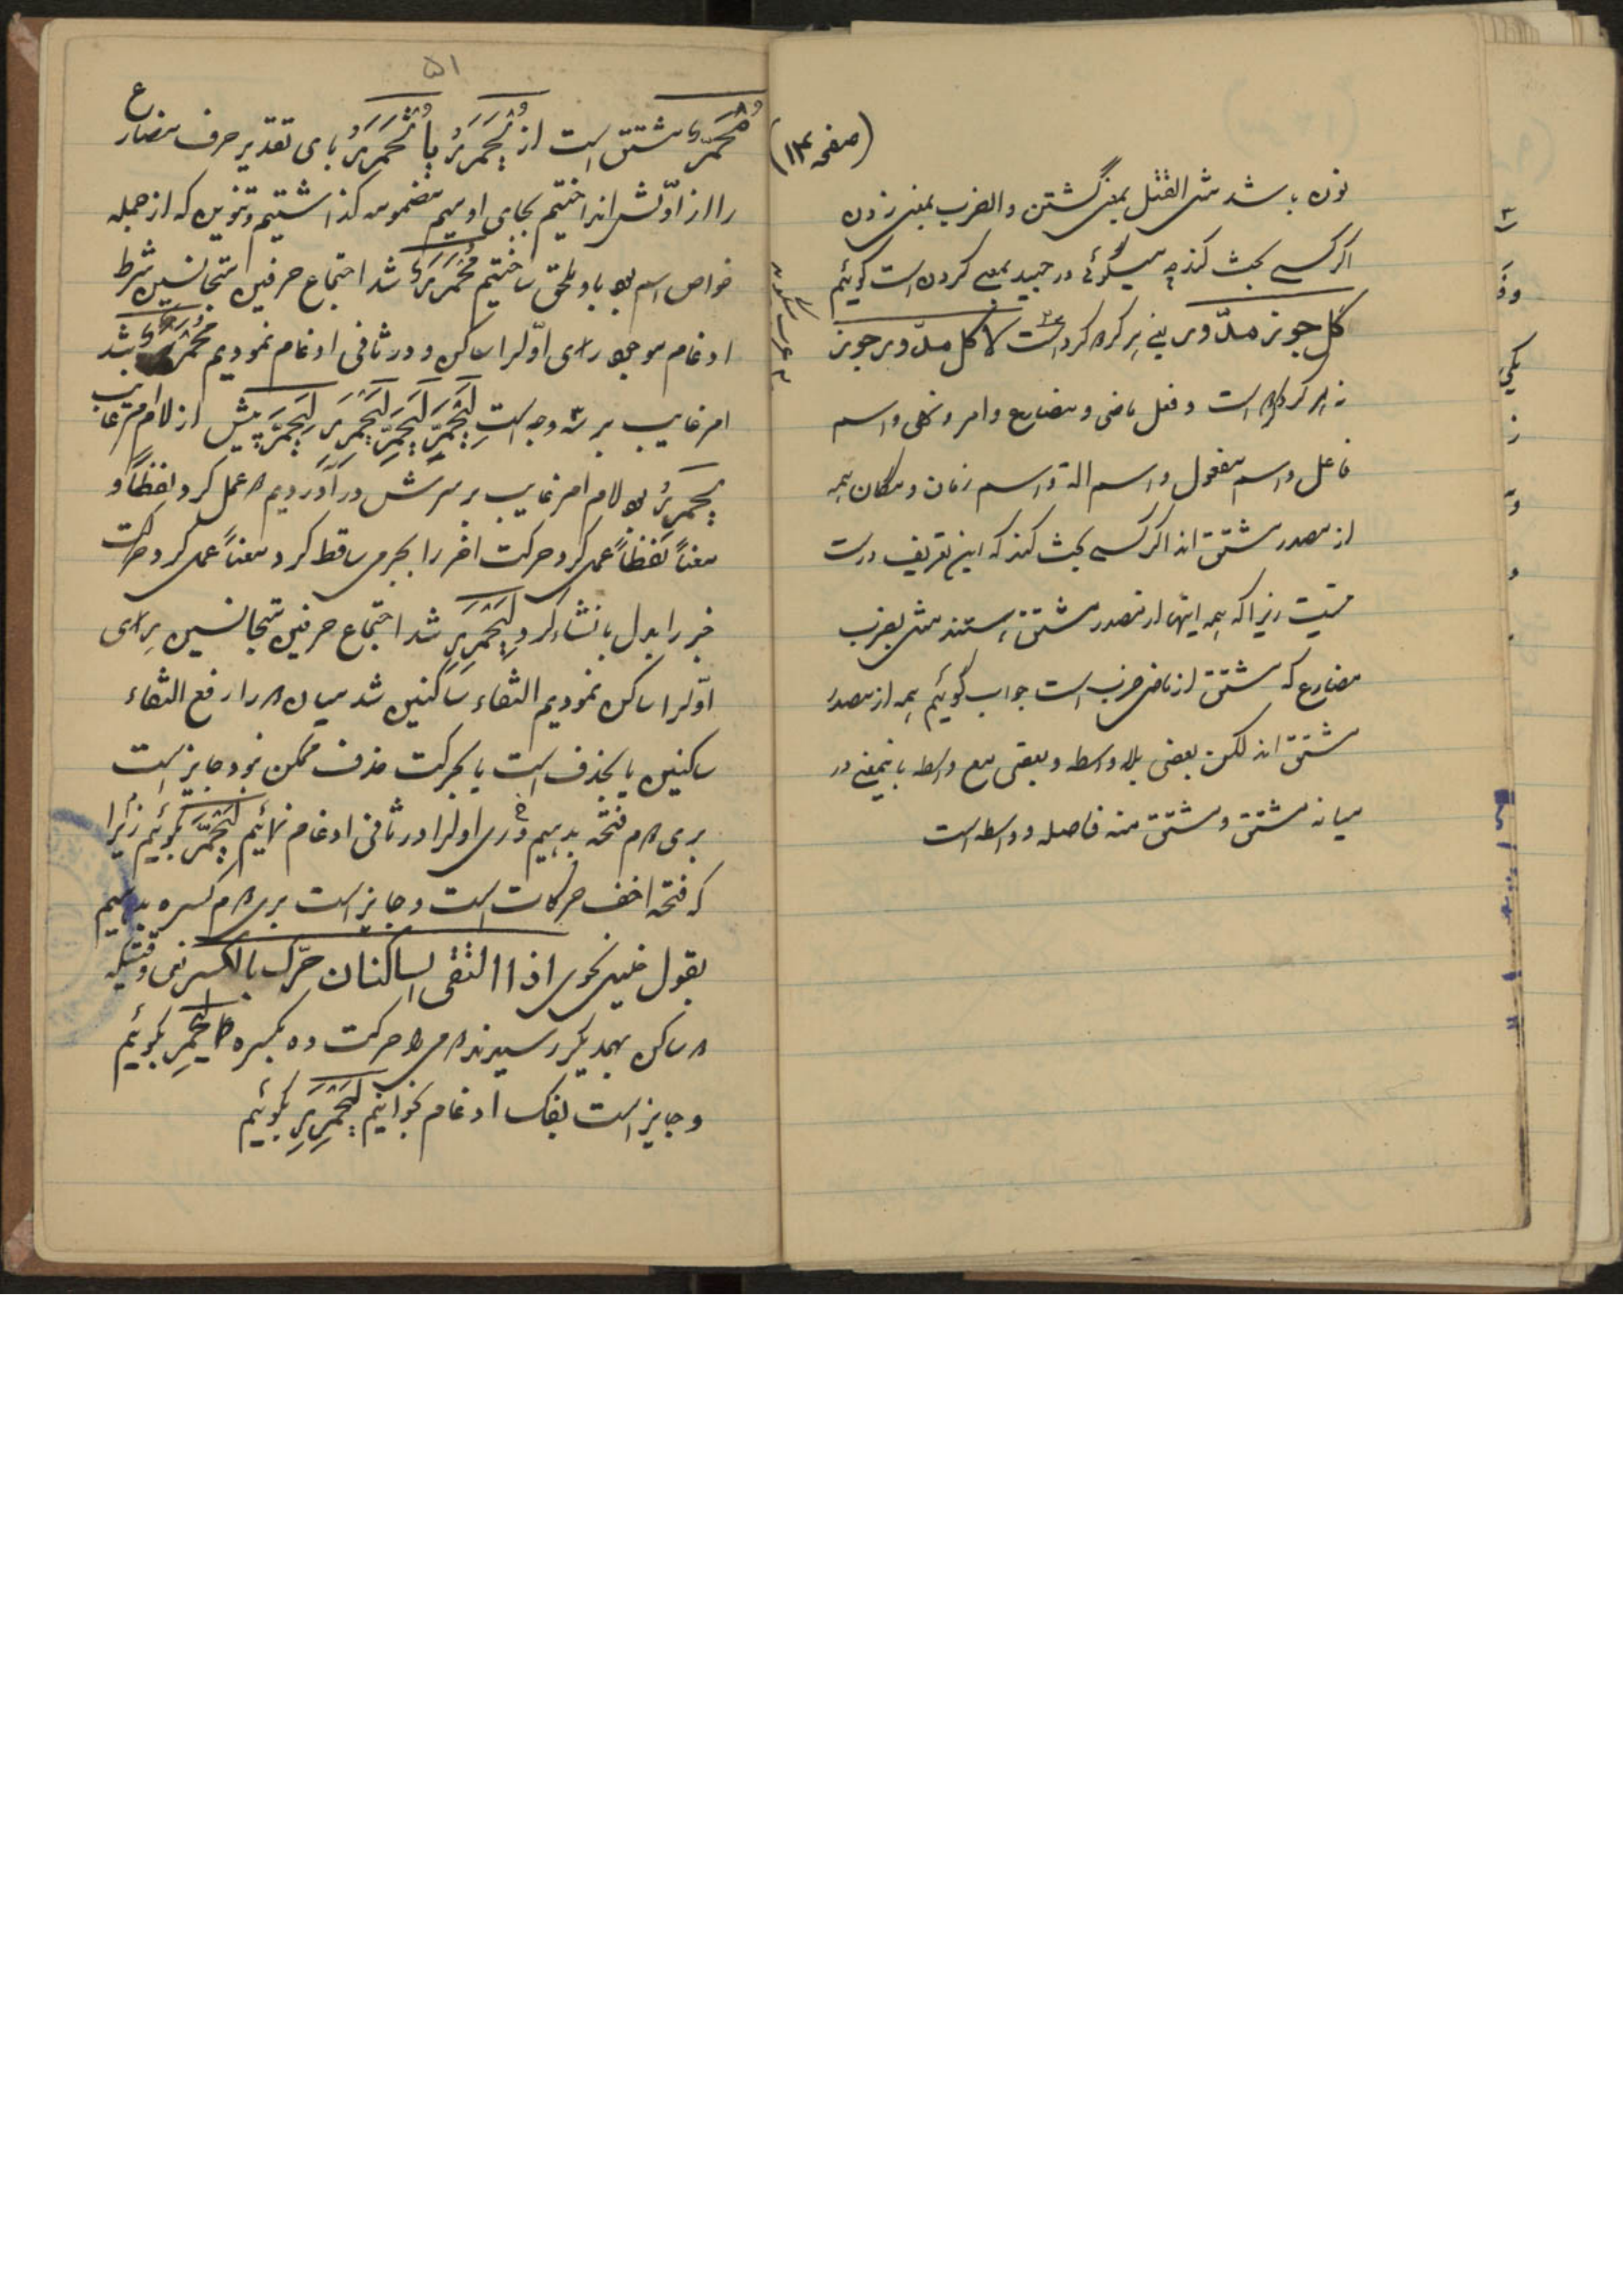 (صفحه ۱۲)
نون باشد مثل القتل بمعنی کشتن والضرب بمعنی زدن
اگر کسی بحث کند چه میگوئی در جید بمعنی گردن است گوئیم
کل جوز مدوّر یعنی هر کرد کرد است لا کل مدوّر جوز
نه هر کرد است و فعل ماضی و مضارع و امر و نهی و اسم
فاعل و اسم مفعول و اسم الة و اسم زمان و مکان همه
از مصدر مشتق اند اگر کسی بحث کند که این تعریف درست
نیست زیرا که همه اینها از مصدر مشتق نیستند مثل یضرب
مضارع که مشتق از ماضی ضرب است جواب گوئیم همه از مصدر
مشتق اند لکن بعضی بلا واسطه و بعضی مع واسطه باینمعنی در
میانه مشتق و مشتق منه فاصله و واسطه است
۵۱
مُحمَرٌّ مشتق است از یُحمَرَرُ یا تُحمَرَرُ بای تقدیر حرف مضارع
را از اوّلش انداختیم بجای او میم مضمومه گذاشتیم و تنوین که از جمله
خواص اسم بود باو ملحق ساختیم مُحمَرَرٌ شد اجتماع حرفین متجانسین شرط
ادغام موجود رای اوّلرا ساکن و در ثانی ادغام نمودیم مُحمَرٌّ شد
امر غایب بر سه وجه است لِیَحمَرَّ لِیَحمَرِّ لِیَحمَرِر لِیَحمَرَّ پیش از لام امر غایب
یَحمَرِرُ بود لام امر غایب بر سرش در آوردیم عمل کرد لفظاً و
معناً لفظاً عمل کرد حرکت اخر را بجزمی ساقط کرد و معناً عمل کرد حرکت
خبر را بدل بانشاء کرد لِیَحمَرِر شد اجتماع حرفین متجانسین رای
اوّلرا ساکن نمودیم التقاء ساکنین شد میان را رفع التقاء
ساکنین یا بحذف است یا بحرکت حذف ممکن نبود جایز است
فتحه بدهیم رای اولرا در ثانی ادغام نمائیم لِیَحمَرَّ گوئیم زیرا
که فتحه اخف حرکات است و جایز است کسره بدهیم
بقول نحوی اذا التقی الساکنان حرّک بالکسر یعنی وقتیکه
ساکن بهمدیگر رسیدند حرکت ده بکسره لِیَحمَرِّ بگوئیم
و جایز است بفک ادغام بخوانیم لِیَحمَرِر بگوئیم